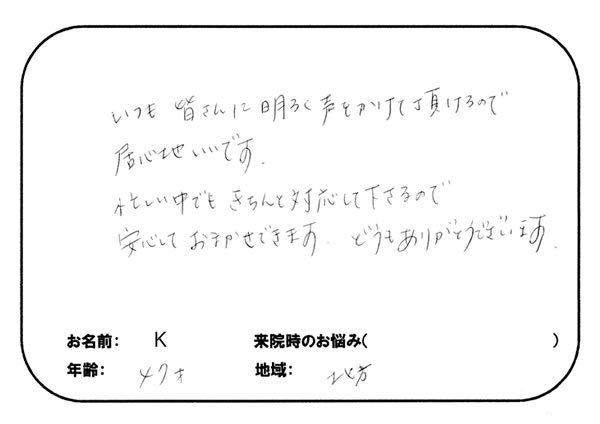 いつも 皆さんに明るく声をかけて頂けるので
居心地いいです.
忙しい中でも きちんと対応して下さるので
安心して おまかせできます. どうもありがとうございます.
お名前: K 来院時のお悩み( )
年齢: 47才 地域: 北方